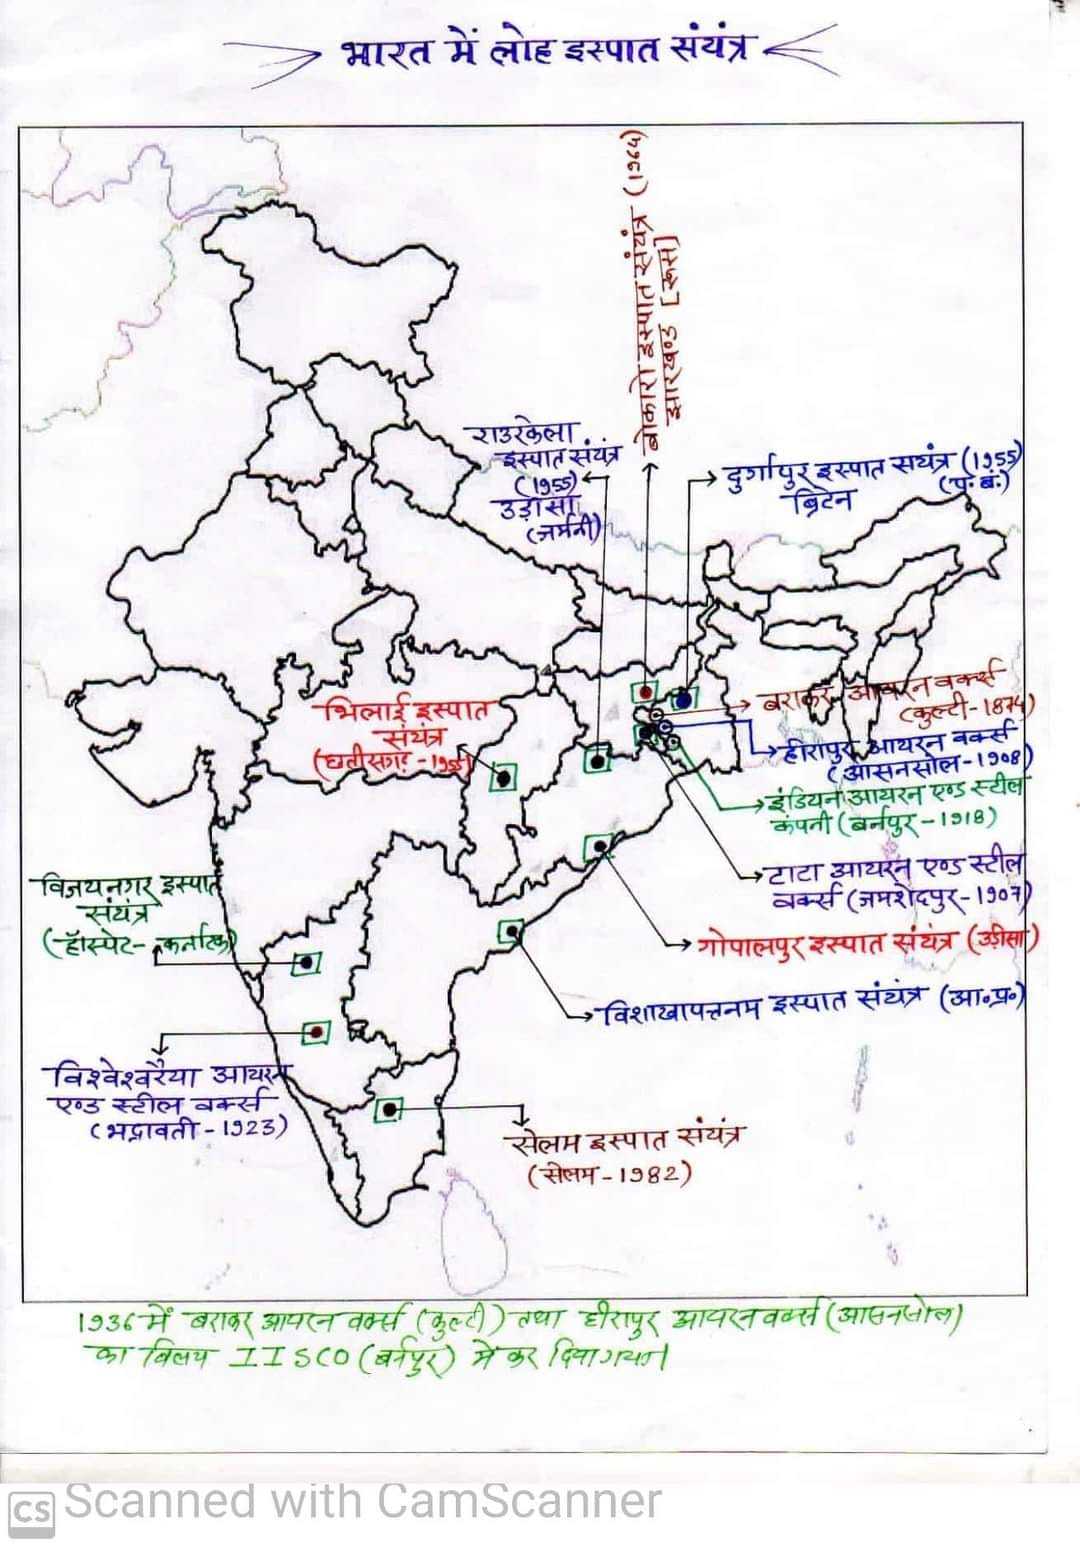 भारत में लोह इस्पात संयंत्र
बोकारो इस्पात संयंत्र (1964)
झारखण्ड [रूस]
राउरकेला
इस्पात संयंत्र
(1955)
उड़ीसा
(जर्मनी)
दुर्गापुर इस्पात सयंत्र (1955)
(प॰ बं॰)
ब्रिटेन
भिलाई इस्पात
संयंत्र
(छतीसगढ़ - 1955)
बराकर आयरन वर्क्स
(कुल्टी-1874)
हीरापुर आयरन वर्क्स
(आसनसोल-1908)
इंडियन आयरन एण्ड स्टील
कंपनी (बर्नपुर-1918)
टाटा आयरन एण्ड स्टील
वर्क्स (जमशेदपुर-1907)
विजयनगर इस्पात
संयंत्र
(हॉस्पेट- कर्नाटक)
गोपालपुर इस्पात संयंत्र (उड़ीसा)
विशाखापत्तनम इस्पात संयंत्र (आ॰प्र॰)
विश्वेश्वरैया आयरन
एण्ड स्टील वर्क्स
(भद्रावती-1923)
सेलम इस्पात संयंत्र
(सेलम-1982)
1936 में बराकर आयरन वर्क्स (कुल्टी) तथा हीरापुर आयरन वर्क्स (आसनसोल)
का विलय IISCO (बर्नपुर) में कर दिया गया।
CS Scanned with CamScanner